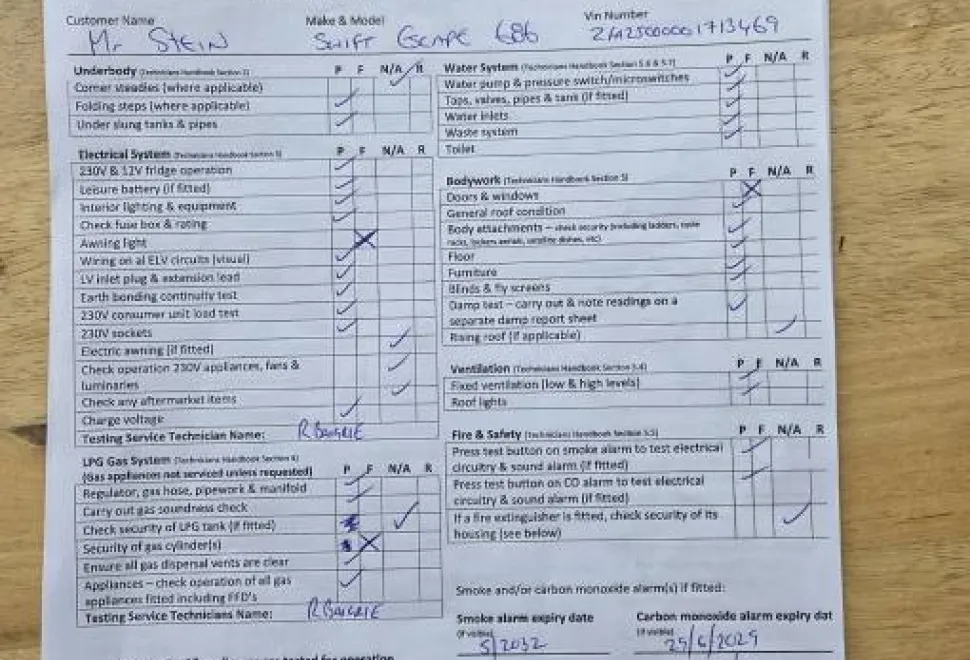 Customer Name Make & Model Vin Number
Mr STEIN SWIFT ESCAPE 686
Underbody (Technicians Handbook Section 2) P F N/A R
Corner steadies (where applicable)
Folding steps (where applicable)
Under slung tanks & pipes
Electrical System (Technicians Handbook Section 3) P F N/A R
230V & 12V fridge operation
Leisure battery (if fitted)
Interior lighting & equipment
Check fuse box & rating
Awning light
Wiring on al ELV circuits (visual)
LV inlet plug & extension lead
Earth bonding continuity test
230V consumer unit load test
230V sockets
Electric awning (if fitted)
Check operation 230V appliances, fans &
luminaries
Check any aftermarket items
Charge voltage
Testing Service Technician Name:
LPG Gas System (Technicians Handbook Section 4)
(Gas appliances not serviced unless requested) P F N/A R
Regulator, gas hose, pipework & manifold
Carry out gas soundness check
Check security of LPG tank (if fitted)
Security of gas cylinder(s)
Ensure all gas dispersal vents are clear
Appliances – check operation of all gas
appliances fitted including FFD's
Testing Service Technicians Name:
Water System (Technicians Handbook Section 5.6 & 5.7) P F N/A R
Water pump & pressure switch/microswitches
Taps, valves, pipes & tank (if fitted)
Water inlets
Waste system
Toilet
Bodywork (Technicians Handbook Section 5) P F N/A R
Doors & windows
General roof condition
Body attachments – check security (including ladders, cycle
racks, lockers aerials, satellite dishes, etc)
Floor
Furniture
Blinds & fly screens
Damp test – carry out & note readings on a
separate damp report sheet
Rising roof (if applicable)
Ventilation (Technicians Handbook Section 5.4) P F N/A R
Fixed ventilation (low & high levels)
Roof lights
Fire & Safety (Technicians Handbook Section 5.5) P F N/A R
Press test button on smoke alarm to test electrical
circuitry & sound alarm (if fitted)
Press test button on CO alarm to test electrical
circuitry & sound alarm (if fitted)
If a fire extinguisher is fitted, check security of its
housing (see below)
Smoke and/or carbon monoxide alarm(s) if fitted:
Smoke alarm expiry date Carbon monoxide alarm expiry dat
(if visible) 5/2032 (if visible) 29/6/2029